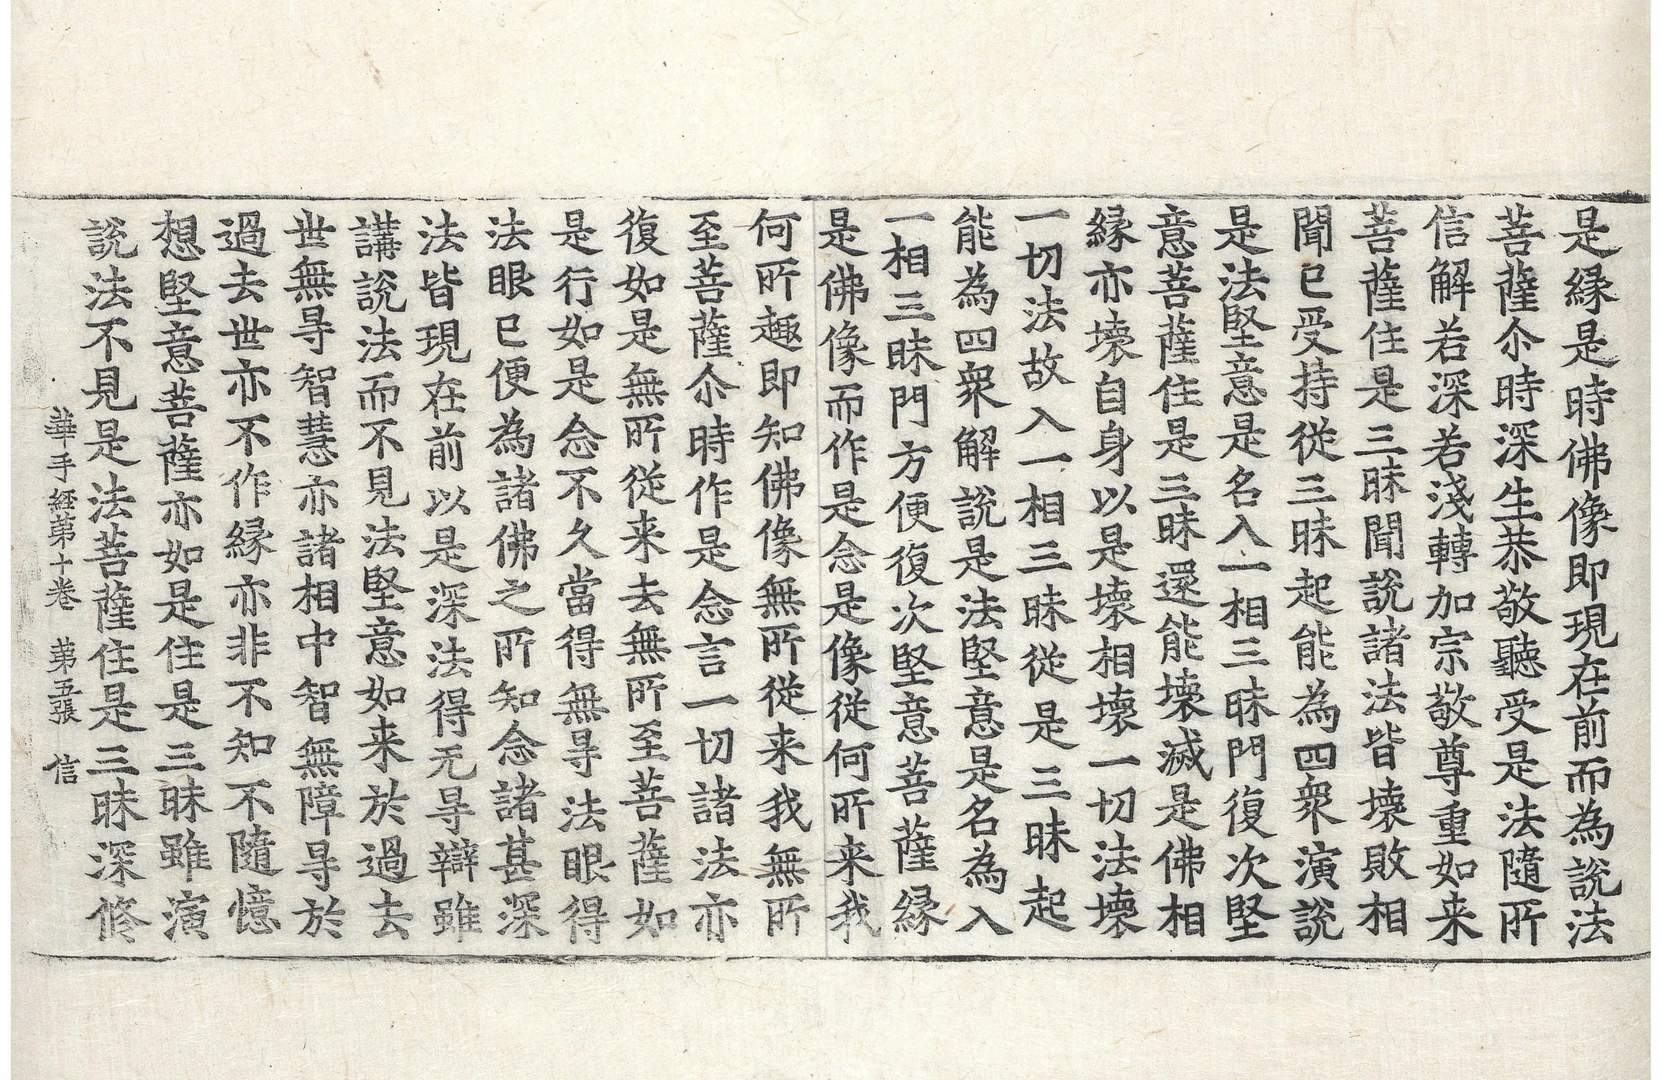 是縁是時佛像即現在前而為說法
菩薩尒時深生恭敬聽受是法隨所
信解若深若淺轉加宗敬尊重如来
菩薩住是三昧聞說諸法皆壞敗相
聞已受持従三昧起能為四衆演說
是法堅意是名入一相三昧門復次堅
意菩薩住是三昧還能壞滅是佛相
縁亦壞自身以是壞相壞一切法壞
一切法故入一相三昧従是三昧起
能為四衆解說是法堅意是名為入
一相三昧門方便復次堅意菩薩縁
是佛像而作是念是像従何所来我
何所趣即知佛像無所従来我無所
至菩薩尒時作是念言一切諸法亦
復如是無所従来去無所至菩薩如
是行如是念不久當得無㝵法眼得
法眼已便為諸佛之所知念諸甚深
法皆現在前以是深法得无㝵辯雖
講說法而不見法堅意如来於過去
世無㝵智慧亦諸相中智無障㝵於
過去世亦不作縁亦非不知不隨憶
想堅意菩薩亦如是住是三昧雖演
說法不見是法菩薩住是三昧深修
華手經第十卷　第五張　信